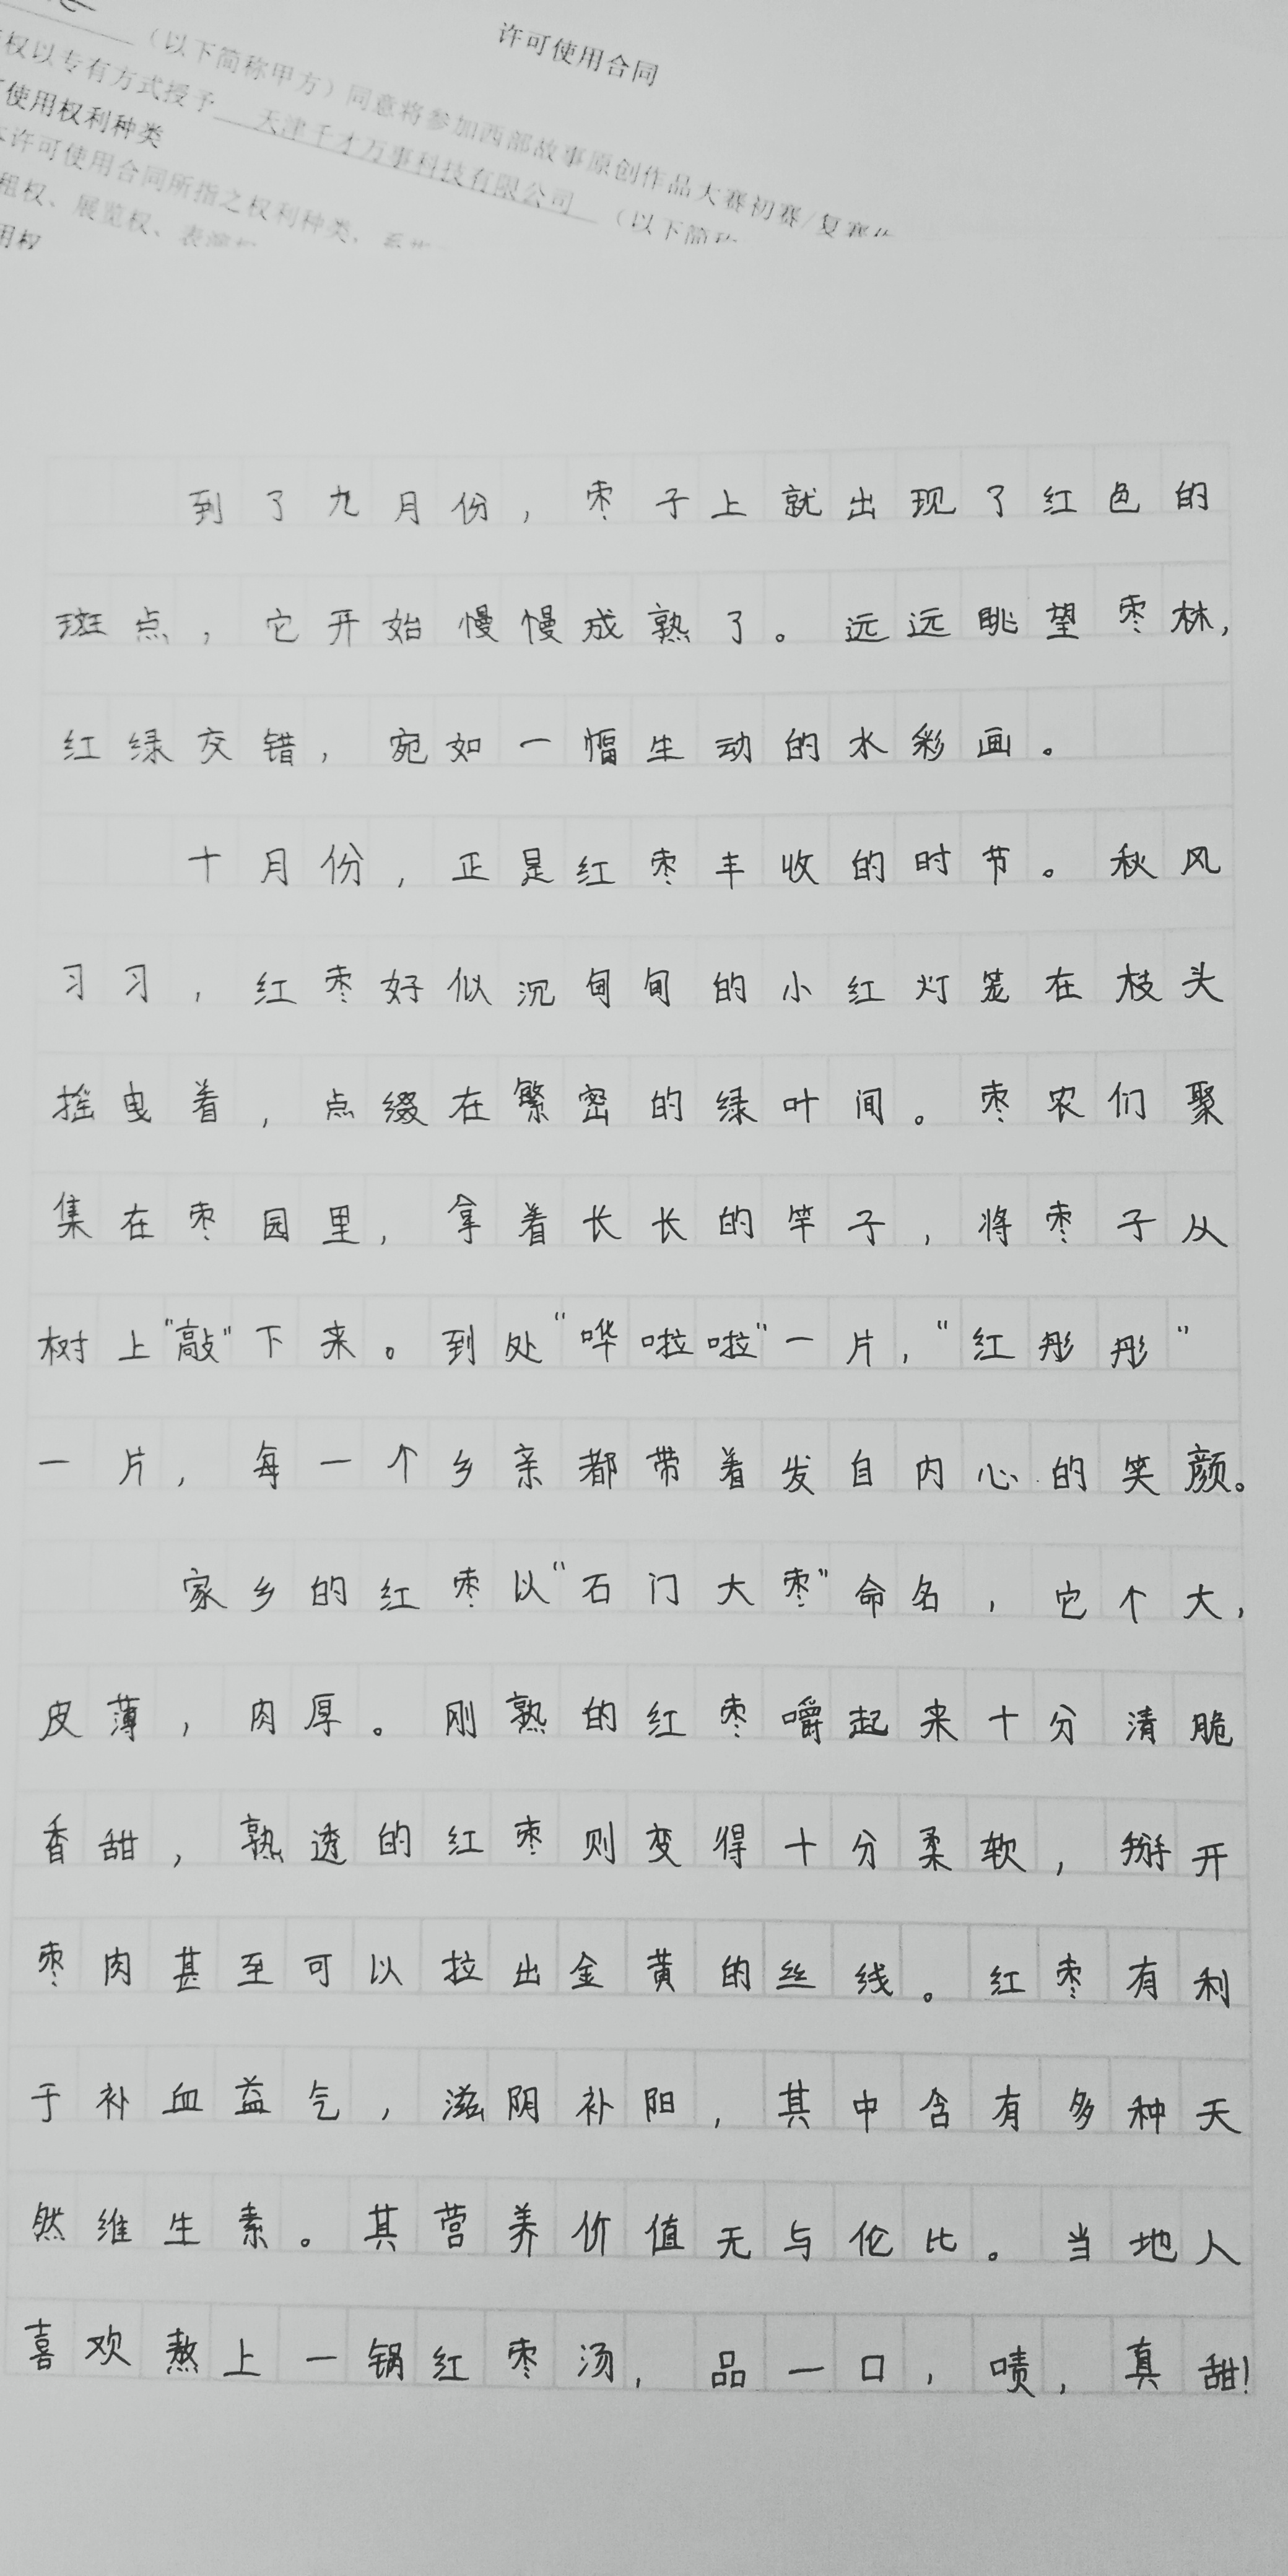 许可使用合同
（以下简称甲方）同意将参加西部故事原创作品大赛初赛/复赛
权以专有方式授予 天津千才万事科技有限公司 （以下简称
使用权利种类
许可使用合同所指之权利种类，系指
租权、展览权、表演权
用权
到了九月份，枣子上就出现了红色的
斑点，它开始慢慢成熟了。远远眺望枣林，
红绿交错，宛如一幅生动的水彩画。
十月份，正是红枣丰收的时节。秋风
习习，红枣好似沉甸甸的小红灯笼在枝头
摇曳着，点缀在繁密的绿叶间。枣农们聚
集在枣园里，拿着长长的竿子，将枣子从
树上"敲"下来。到处"哗啦啦"一片，"红彤彤"
一片，每一个乡亲都带着发自内心的笑颜。
家乡的红枣以"石门大枣"命名，它个大，
皮薄，肉厚。刚熟的红枣嚼起来十分清脆
香甜，熟透的红枣则变得十分柔软，掰开
枣肉甚至可以拉出金黄的丝线。红枣有利
于补血益气，滋阴补阳，其中含有多种天
然维生素。其营养价值无与伦比。当地人
喜欢熬上一锅红枣汤，品一口，啧，真甜！